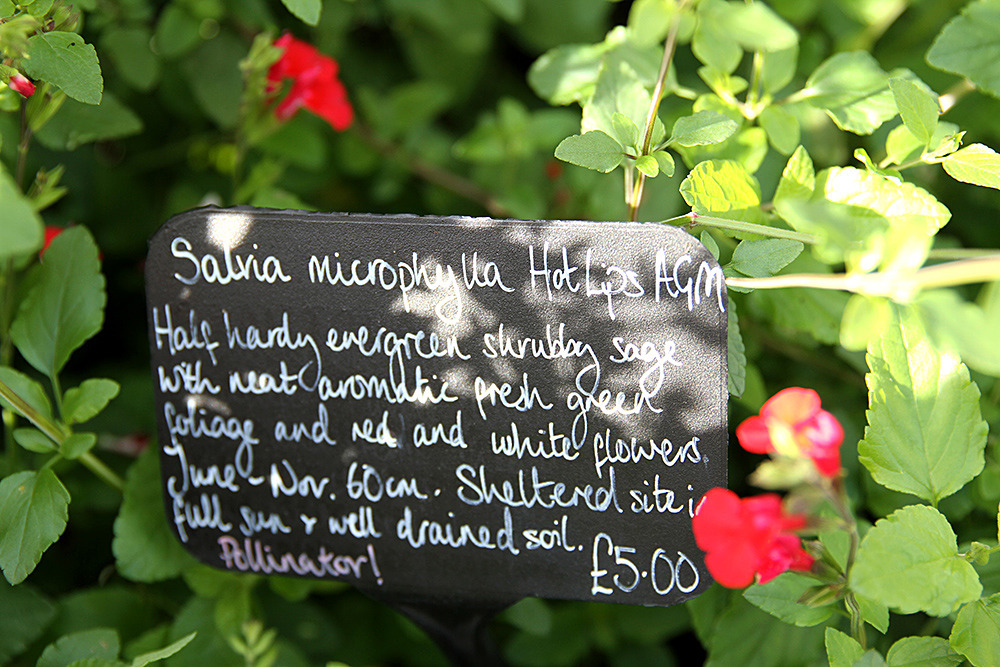 Salvia microphylla Hot Lips AGM
Half hardy evergreen shrubby sage
with neat aromatic fresh green
foliage and red and white flowers.
June - Nov. 60cm. Sheltered site in
full sun + well drained soil.
Pollinator! £5.00